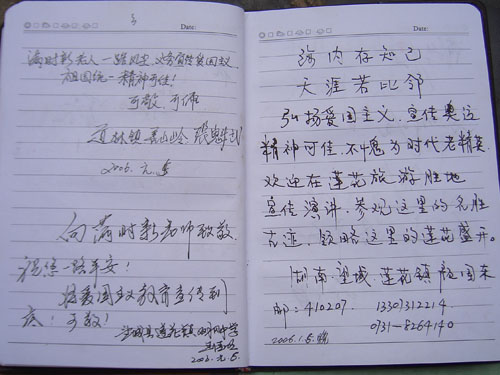 Date:
满时新老人一路风尘 义务宣传爱国主义
祖国统一精神可佳!
可敬、可佩
道林镇
2006.元.5
向满时新老师致敬
祝您一路平安!
把爱国主义教育宣传到
底!可敬!
莲花镇 中学
2006.元.5.
Date:
海内存知己
天涯若比邻
弘扬爱国主义、宣传奥运
精神可佳、不愧为时代老精英
欢迎在莲花旅游胜地
宣传演讲、参观这里的名胜
古迹,领略这里的莲花盛开。
湖南·望城·莲花镇 颜国荣
邮:410207. 13307312214
2006.1.5. 0731-8264140